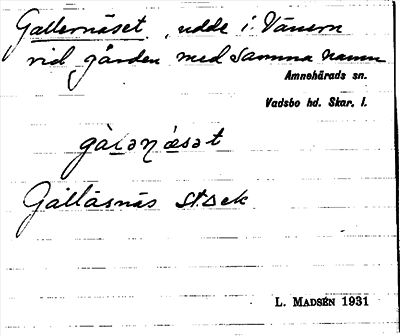 Gallernäset, udde i Vänern
vid gården med samma namn
Amnehärads sn.
Vadsbo hd. Skar. l.
Gållåsnäs st.ek.
L. MADSÉN 1931